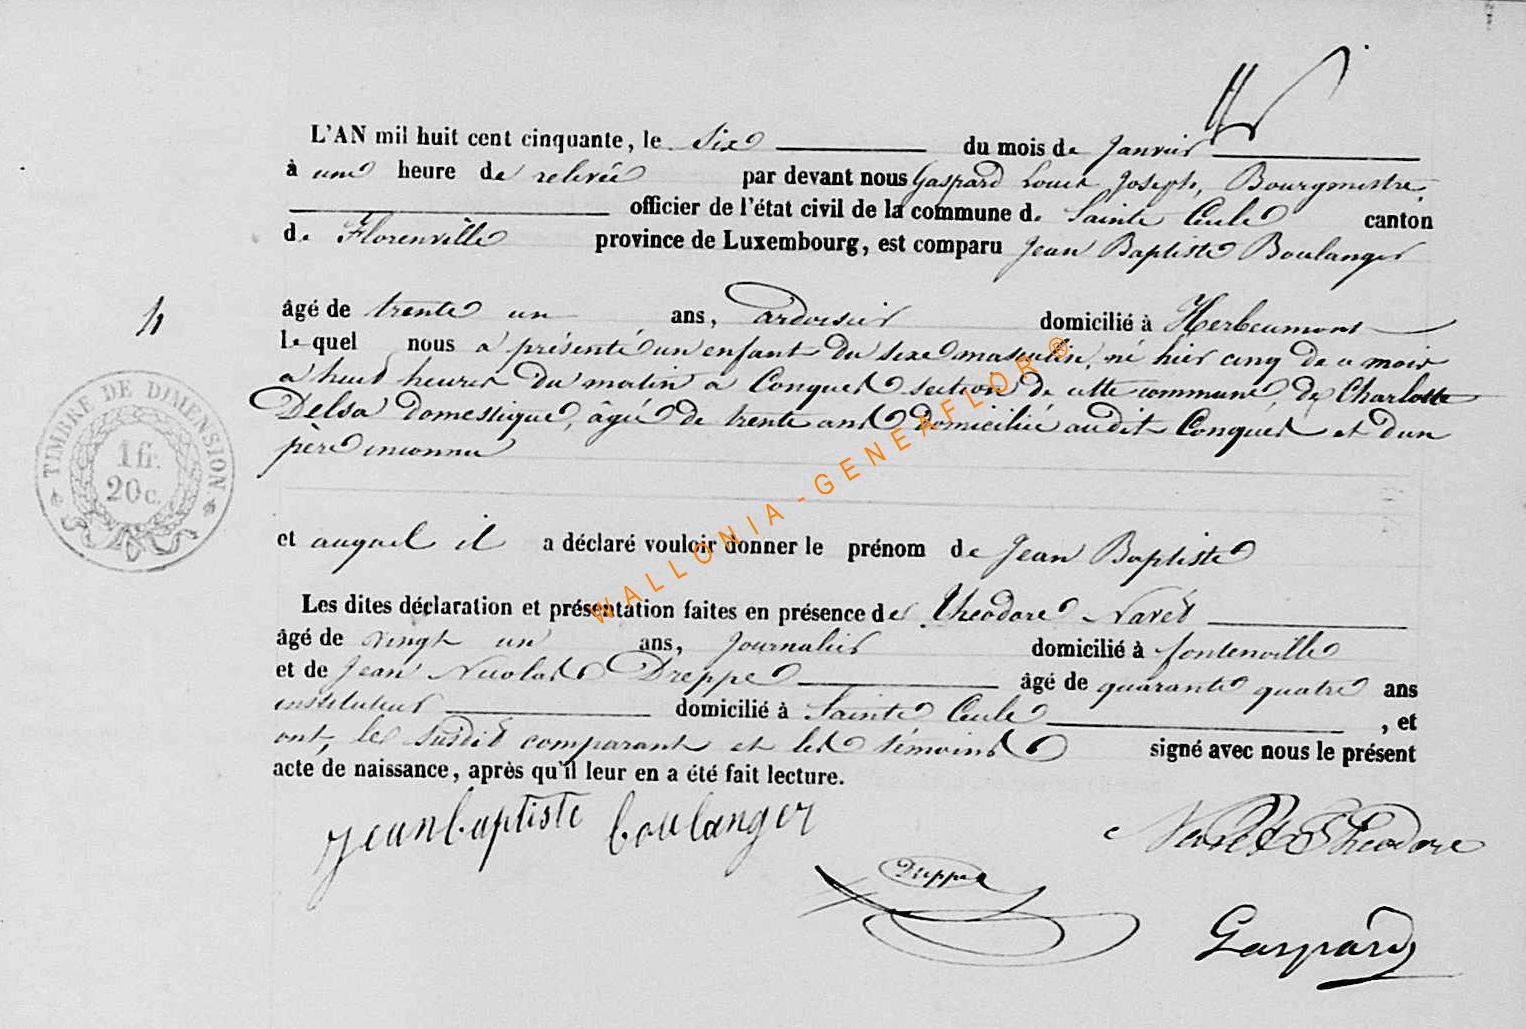 L'AN mil huit cent cinquante, le six du mois de Janvier
à une heure de relevée par devant nous Gaspard Louis Joseph, Bourgmestre,
officier de l'état civil de la commune de Sainte Cecile canton
de Florenville province de Luxembourg, est comparu Jean Baptiste Boulanger
âgé de trente un ans, ardoisier domicilié à Herbeumont
le quel nous a présenté un enfant du sexe masculin, né hier cinq de ce mois
à huit heures du matin à Conques section de cette commune, de Charlotte
Delsa domestique, âgée de trente ans domiciliée audit Conques et d'un
père inconnu
et auquel il a déclaré vouloir donner le prénom de Jean Baptiste
Les dites déclaration et présentation faites en présence de Théodore Navet
âgé de vingt un ans, journalier domicilié à fontenoille
et de Jean Nicolas Dreppe âgé de quarante quatre ans
instituteur domicilié à Sainte Cecile, et
ont, le susdit comparant et les témoins signé avec nous le présent
acte de naissance, après qu'il leur en a été fait lecture.
jean baptiste boulanger
Navet Theodore
Dreppe
Gaspard
4
TIMBRE DE DIMENSION
1 fr.
20 c.
WALLONIA - GENEAFLOR ®